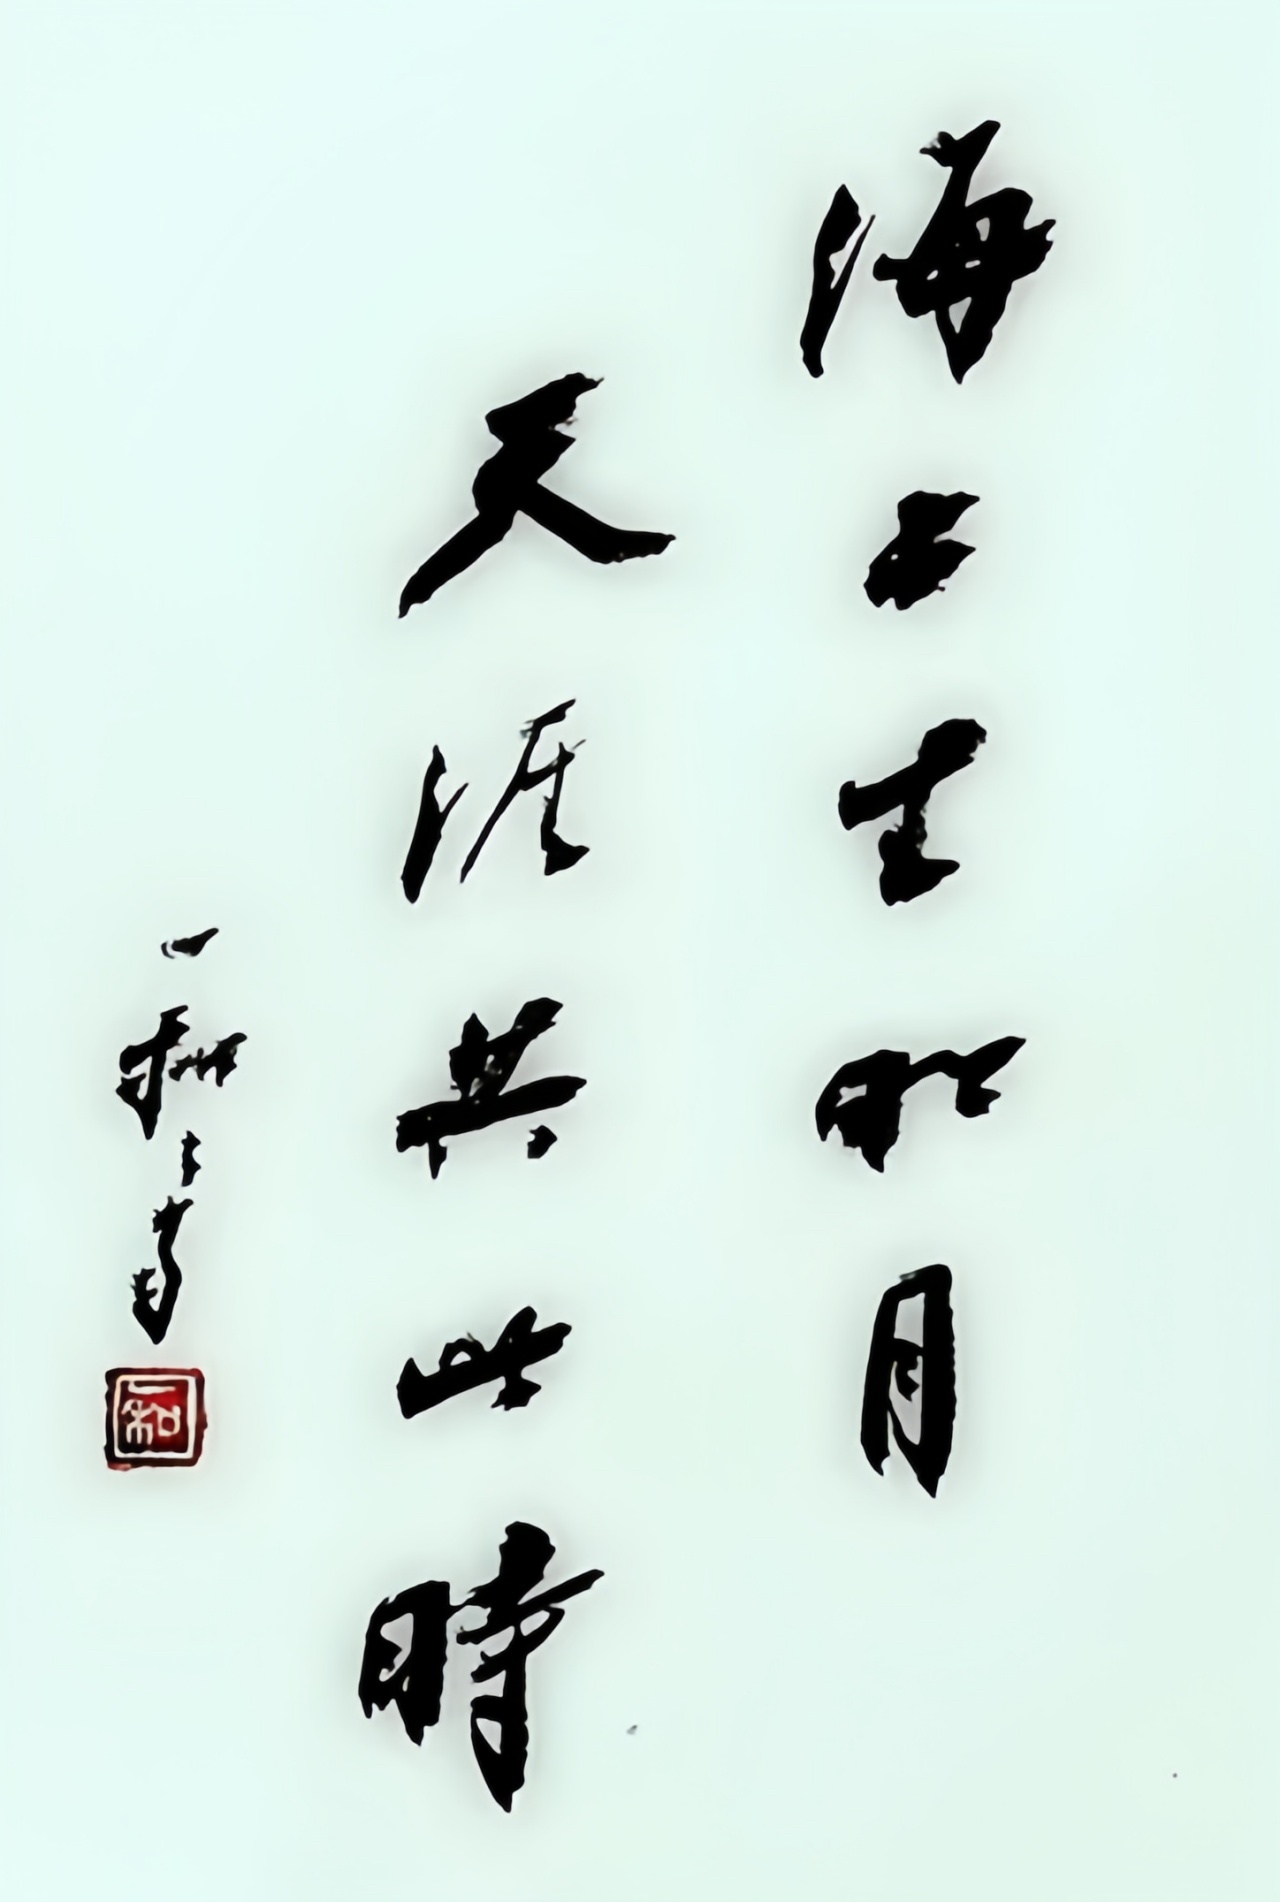 海上生明月
天涯共此時
一和
一和